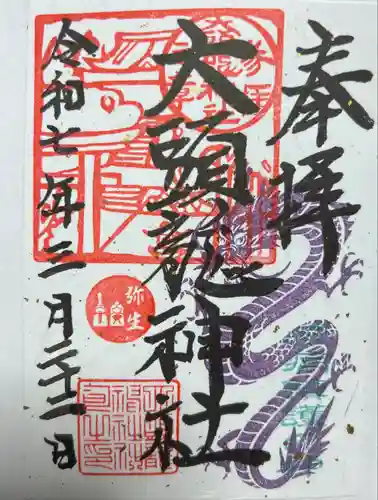 奉拝
大頭龍神社
令和七年三月二十二日
弥生